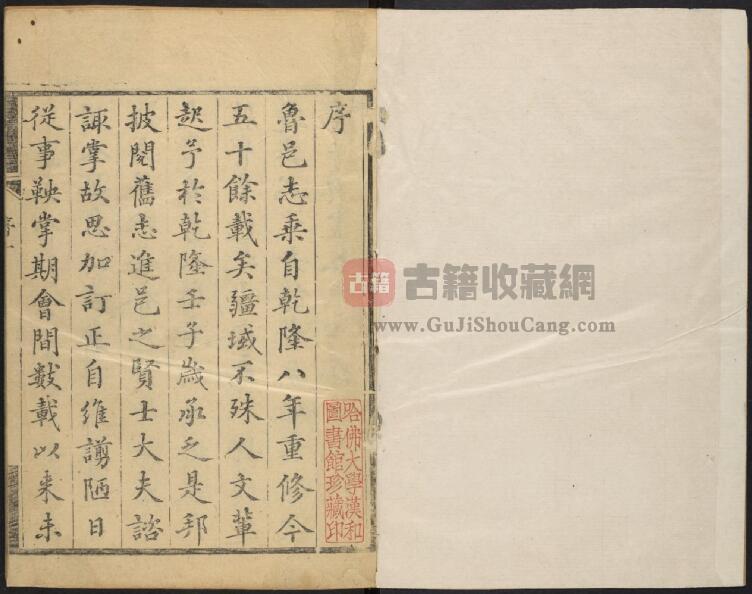 序
魯邑志乘自乾隆八年重修今
五十餘載矣疆域不殊人文輩
起予於乾隆壬子歲承乏是邦
披閱舊志進邑之賢士大夫諮
諏掌故思加訂正自維譾陋日
從事鞅掌期會間數載以來未
序
哈佛大學漢和
圖書館珍藏印
古籍
古籍收藏網
www.GuJiShouCang.com